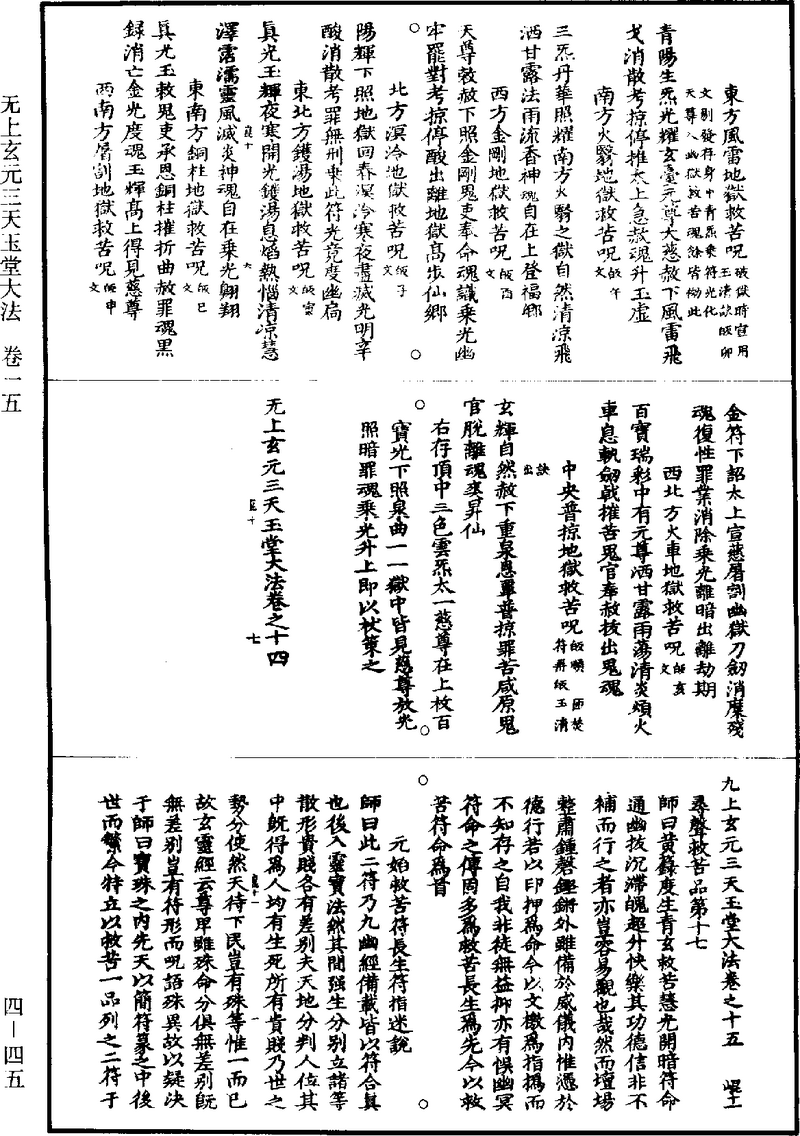 无上玄元三天玉堂大法　卷一五
四－四五
東方風雷地獄救苦呪
青陽生炁光耀玄臺元尊大慈赦下風雷飛
戈消散考掠停推太上急赦魂升玉虛
南方火翳地獄救苦呪
三炁丹華照耀南方火翳之獄自然清凉飛
洒甘露法雨流香神魂自在上登福鄉
西方金剛地獄救苦呪
天尊敕赦下照金剛鬼吏奉命魂議乘光幽
牢罷對考掠停酸出離地獄高步仙鄉
北方溟泠地獄救苦呪
陽輝下照地獄回春溟泠寒夜盡滅光明辛
酸消散考罪無刑乘此符光竟度幽扃
東北方鑊湯地獄救苦呪
真光玉輝夜寒開光鑊湯息焰熱惱清凉慧
澤霑濡靈風滅炎神魂自在乘光翺翔
東南方銅柱地獄救苦呪
真光玉敕鬼吏承恩銅柱摧折曲赦罪魂黑
録消亡金光度魂玉輝高上得見慈尊
西南方屠割地獄救苦呪
金符下詔太上宣慈屠割幽獄刀劒消糜殘
魂復性罪業消除乘光離暗出離劫期
西北方火車地獄救苦呪
百寶瑞彩中有元尊洒甘露雨蕩清炎煩火
車息軌劒戟摧苦鬼官奉赦拔出鬼魂
中央普掠地獄救苦呪
玄輝自然赦下重泉恩單普掠罪苦咸原鬼
官脫離魂爽昇仙
右存頂中三色雲炁太一慈尊在上枚百
寶光下照泉曲一一獄中皆見慈尊放光
照暗罪魂乘光升上即以杖策之
无上玄元三天玉堂大法卷之十四
九上玄元三天玉堂大法卷之十五
尋聲救苦品第十七
師曰黄籙度生青玄救苦慧光開暗符命
通幽拔沉滯魄超升快樂其功德信非不
補而行之者亦豈容易觀也哉然而壇場
整肅鍾磬鏗鏘外雖備於威儀内惟憑於
德行若以印押爲命令以文檄爲指撝而
不知存之自我非徒無益抑亦有悞幽冥
符命之傳固多爲救苦長生爲先今以救
苦符命爲首
元始救苦符長生符指迷說
師曰此二符乃九幽經備載皆以符合其
也後入靈寶法然其間强生分別立諸等
散形貴賤各有差別夫天地分判人位其
中既得爲人均有生死所有貴賤乃世之
勢分使然天待下民豈有殊等惟一而已
故玄靈經云尊卑雖殊命分俱無差別既
無差別豈有符形而呪語殊異故以疑決
于師曰寶珠之内先天以簡符篆之中後
世而繁今特立以救苦一品列之二符于